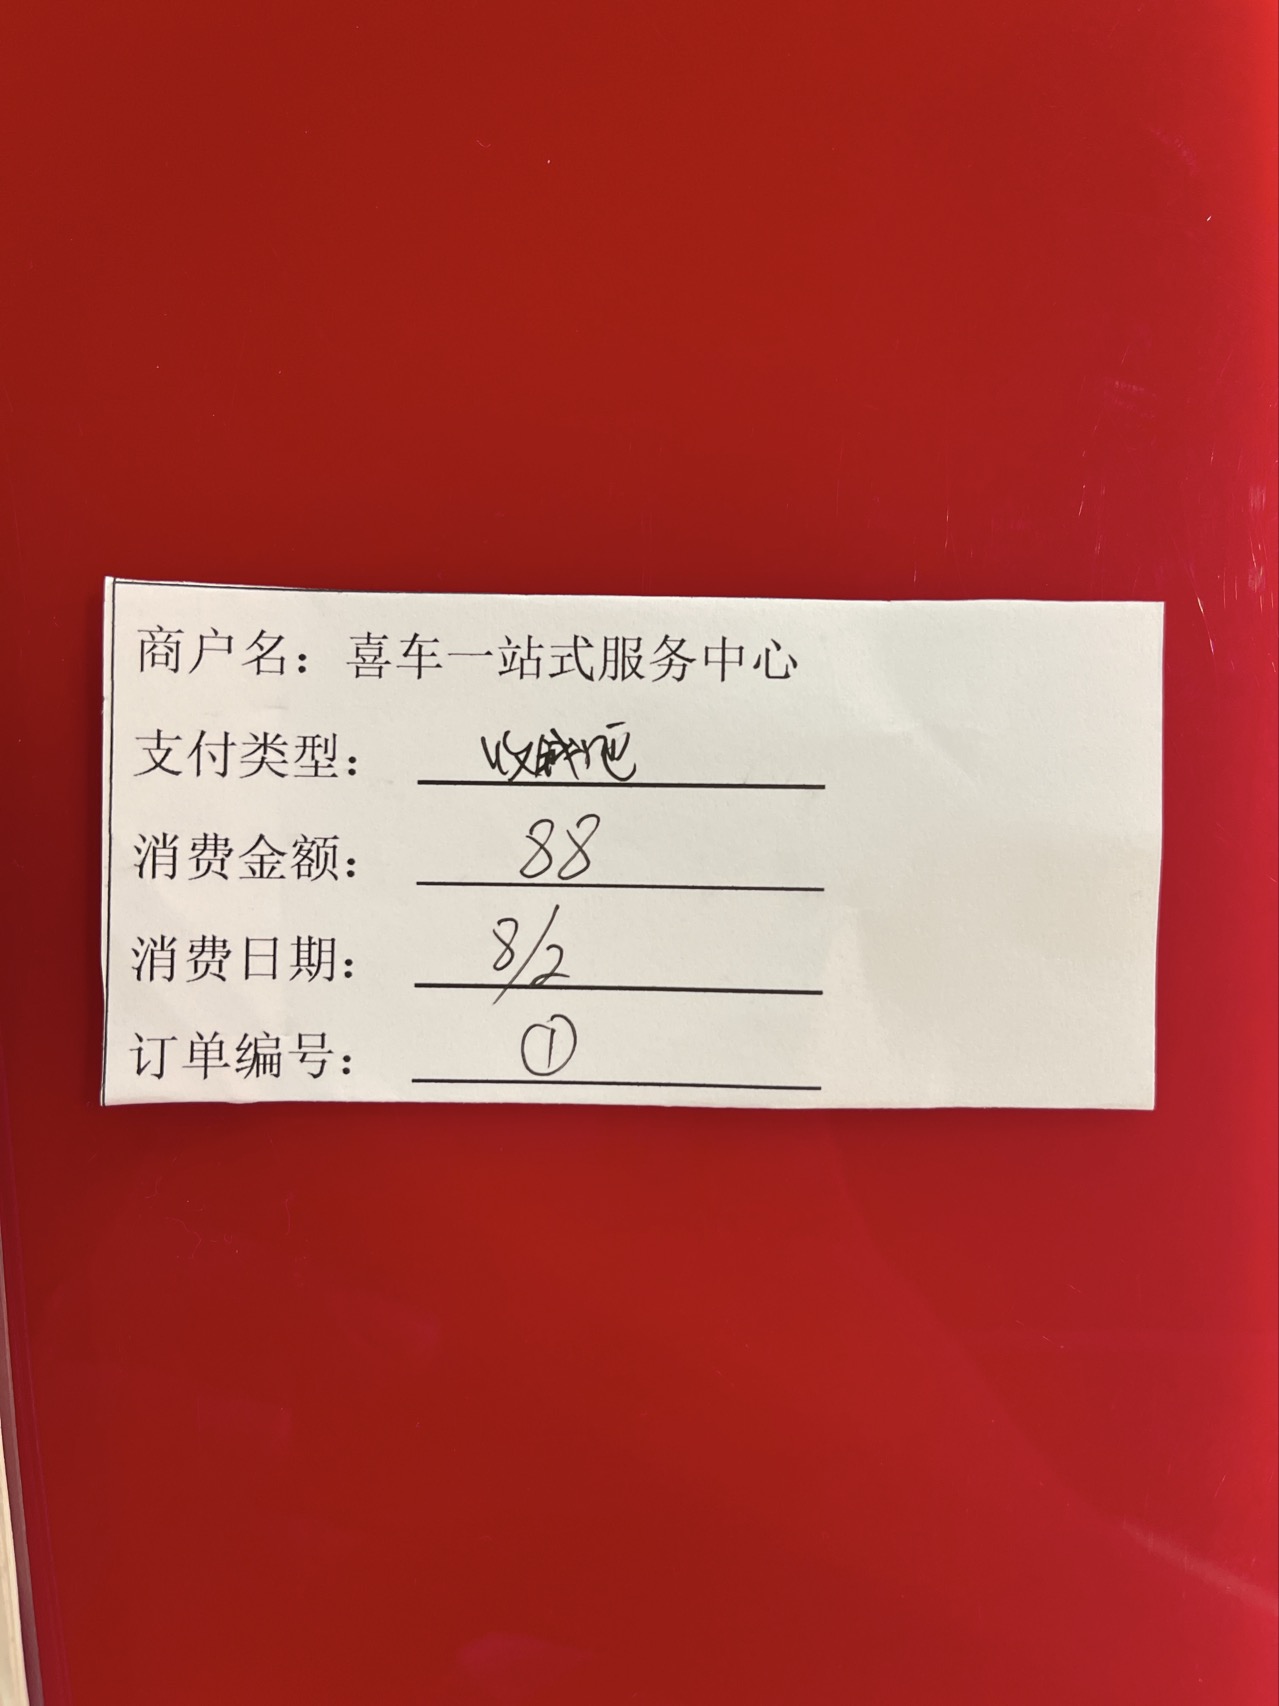 商户名：喜车一站式服务中心
支付类型：收钱吧
消费金额：88
消费日期：8/2
订单编号：①